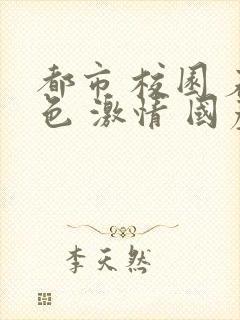 都市校园
色激情国
李天然